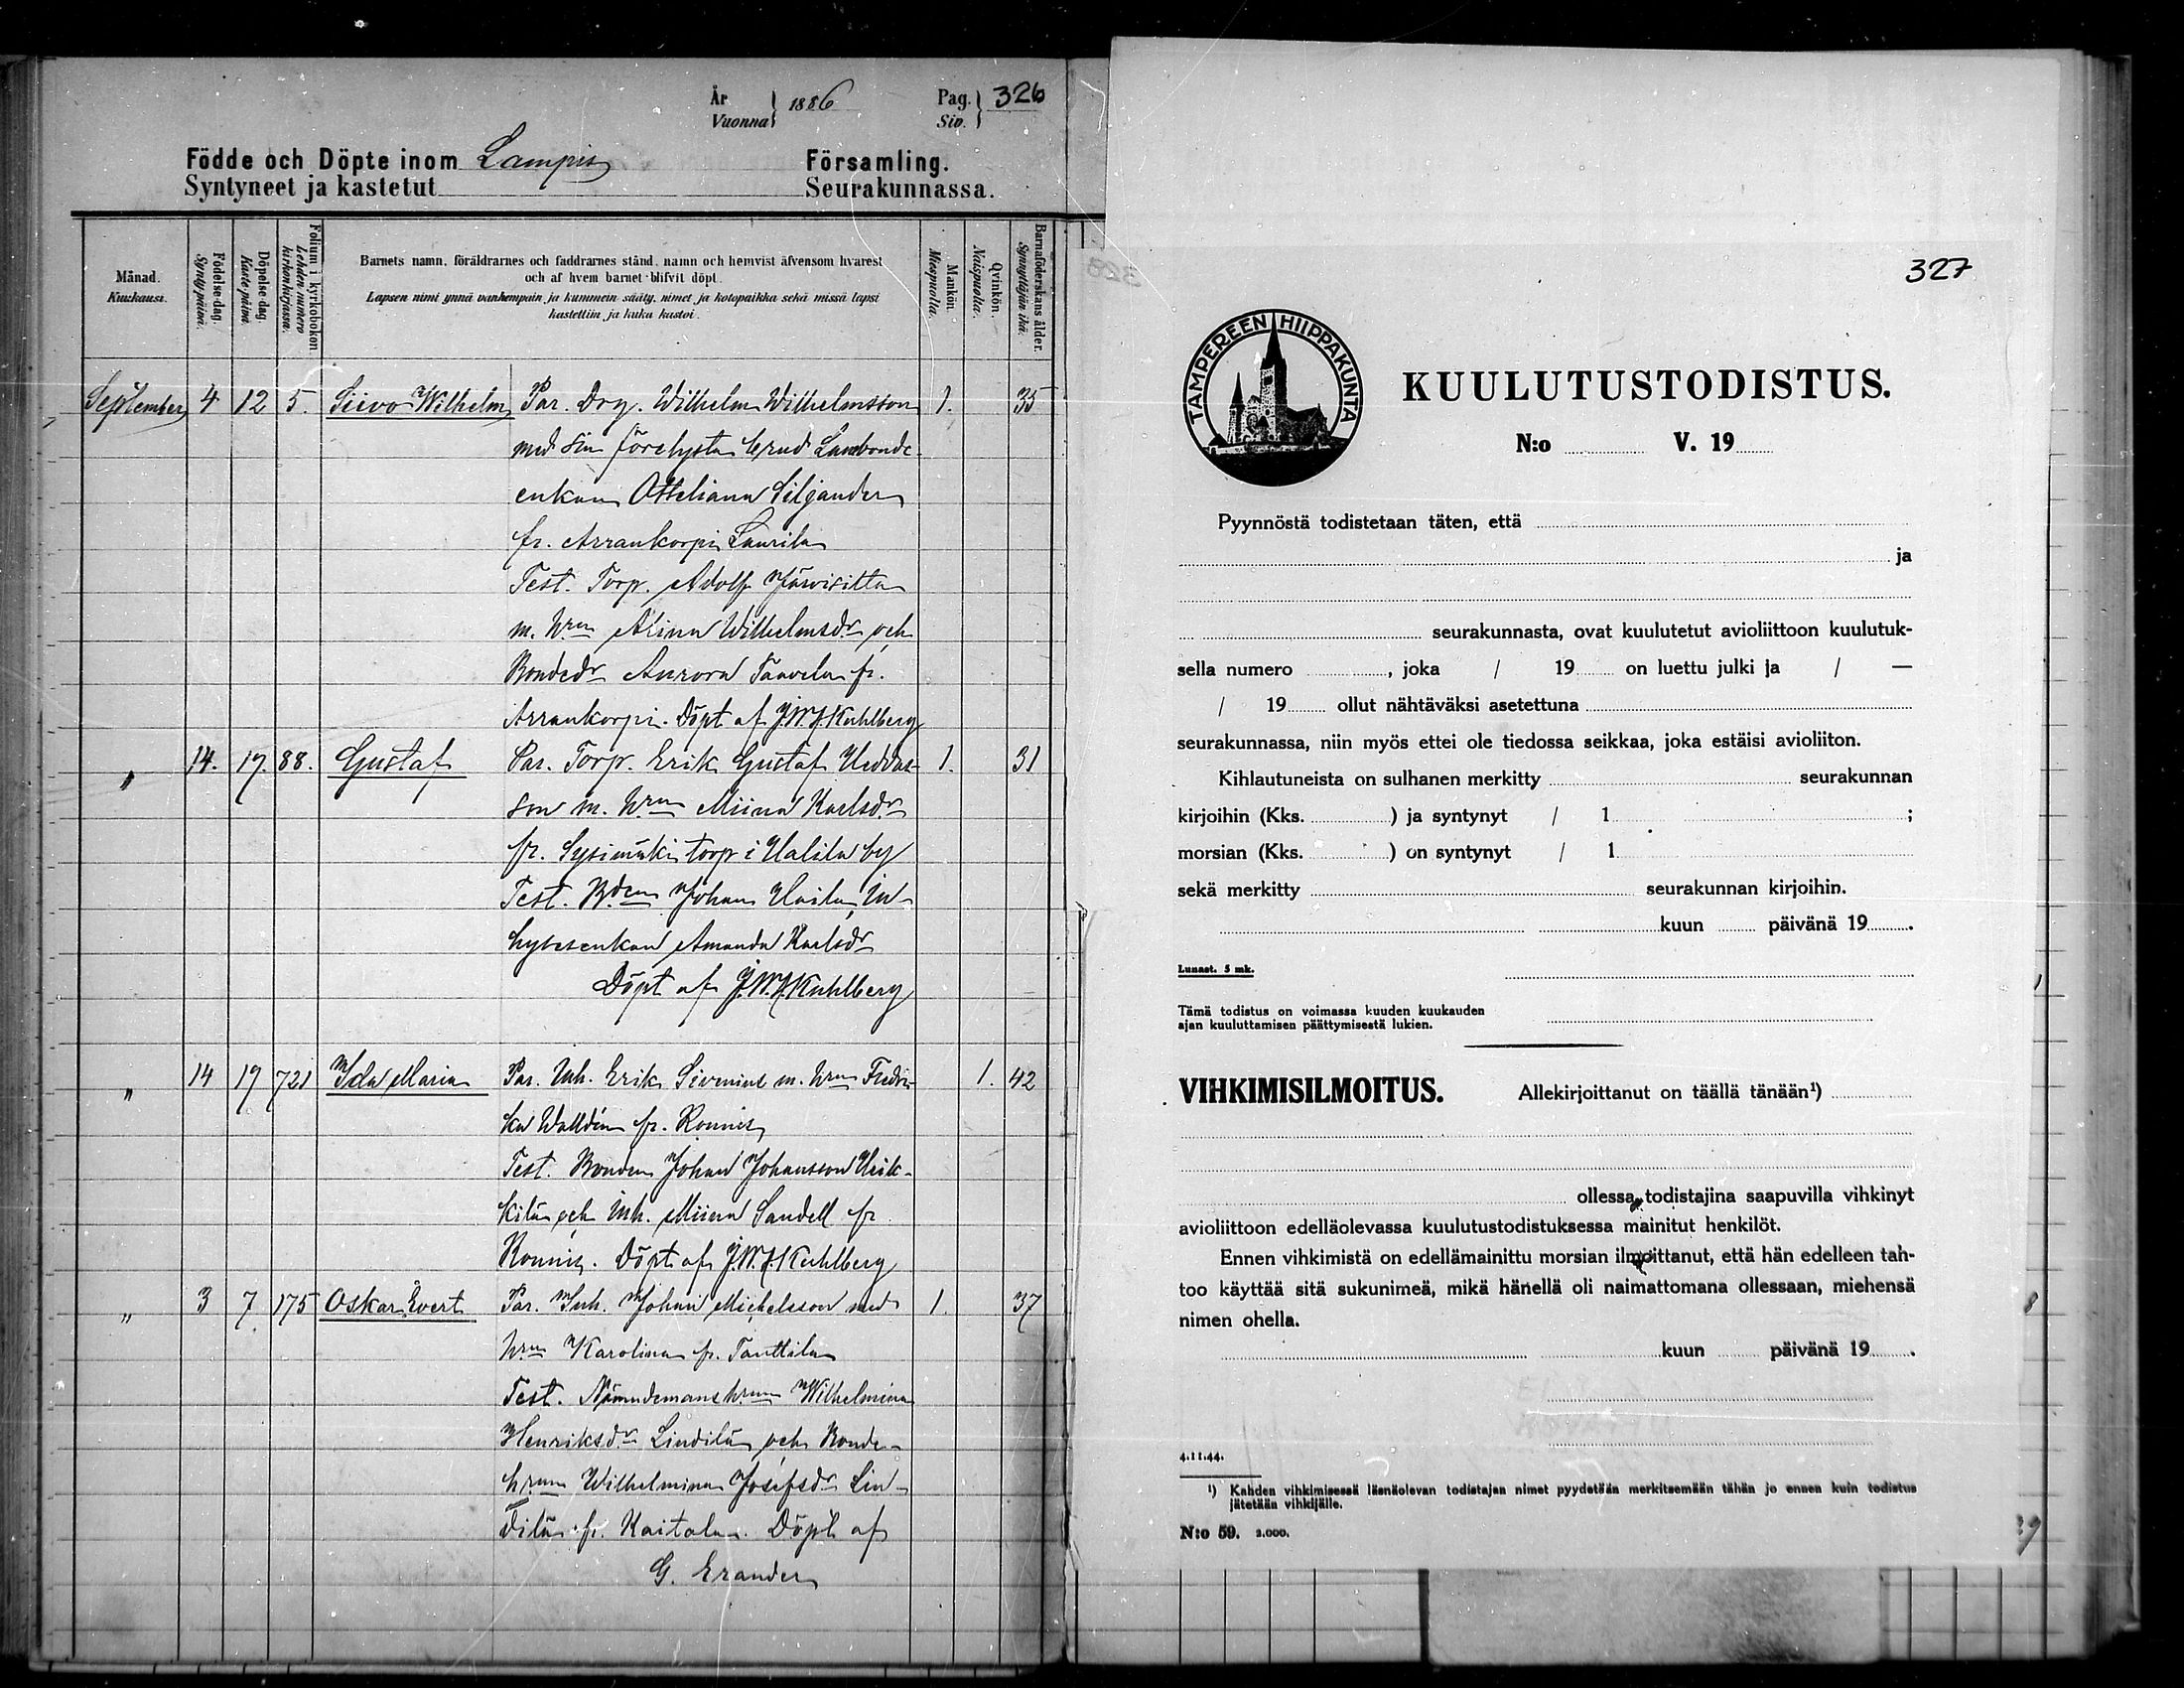 År
Vuonna } 1886
Pag.
Siv. } 326
Födde och Döpte inom Lampis Församling.
Syntyneet ja kastetut Seurakunnassa.
Månad.
Kuukausi.
Födelse-dag.
Synty-päivä.
Döpelse-dag.
Kaste-päivä.
Folium i kyrkoboken
Lehden numero
kirkonkirjassa.
Barnets namn, föräldrarnes och faddrarnes stånd, namn och hemvist äfvensom hvarest
och af hvem barnet blifvit döpt.
Lapsen nimi ynnä vanhempain ja kummein sääty, nimet ja kotopaikka sekä missä lapsi
kastettiin ja kuka kastoi.
Mankön.
Miespuolta.
Qvinkön.
Naispuolta.
Barnaföderskans ålder.
Synnyttäjän ikä.
September 4 12 5. Siivo Wilhelm Par. Drg. Wilhelm Wilhelmsson 1. 35
med sin
enkan Otteliana Siljander
fr. Arrankorpi Laurila
Test. Torp. Adolf Järvisitta
m. hrun Alina Wilhelmsdr och
Bondedr Aurora Taavela fr.
Arrankorpi. Döpt af J.W.F. Kuhlberg
" 14. 19. 88. Gustaf Par. Torp. Erik Gustaf 1. 31
son m. hrun Miina Karlsdr
fr. Sysimäki torp i by
Test. Bden Johan In-
hysesenkan Amanda Karlsdr
Döpt af J.W.F. Kuhlberg
" 14 19 721 Ida Maria Par. Inh. Erik Sivenius m. hrun Fredri- 1. 42
ka Walldén fr. Ronnis
Test. Bonden Johan Johansson
kilä och Inh. Miina Sandell fr
Ronnis. Döpt af J.W.F. Kuhlberg
" 3 7 175 Oskar Evert Par. Inh. Johan Michelsson med 1. 37
hrun Karolina fr. Tanttila
Test. Nämndemans hrun Wilhelmina
Henriksdr Lindilä och Bonde-
hrun Wilhelmina Josefsdr Lin-
dilä fr. Kaitala. Döpt af
G. Erander
327
TAMPEREEN HIIPPAKUNTA
KUULUTUSTODISTUS.
N:o V. 19
Pyynnöstä todistetaan täten, että
ja
seurakunnasta, ovat kuulutetut avioliittoon kuulutuk-
sella numero , joka / 19 on luettu julki ja / —
/ 19 ollut nähtäväksi asetettuna
seurakunnassa, niin myös ettei ole tiedossa seikkaa, joka estäisi avioliiton.
Kihlautuneista on sulhanen merkitty seurakunnan
kirjoihin (Kks. ) ja syntynyt / 1 ;
morsian (Kks. ) on syntynyt / 1
sekä merkitty seurakunnan kirjoihin.
kuun päivänä 19 .
Lunast. 5 mk.
Tämä todistus on voimassa kuuden kuukauden
ajan kuuluttamisen päättymisestä lukien.
VIHKIMISILMOITUS. Allekirjoittanut on täällä tänään¹)
ollessa todistajina saapuvilla vihkinyt
avioliittoon edelläolevassa kuulutustodistuksessa mainitut henkilöt.
Ennen vihkimistä on edellämainittu morsian ilmoittanut, että hän edelleen tah-
too käyttää sitä sukunimeä, mikä hänellä oli naimattomana ollessaan, miehensä
nimen ohella.
kuun päivänä 19 .
4.11.44.
¹) Kahden vihkimisessä läsnäolevan todistajan nimet pyydetään merkitsemään tähän jo ennen kuin todistus
jätetään vihkijälle.
N:o 59. 2.000.